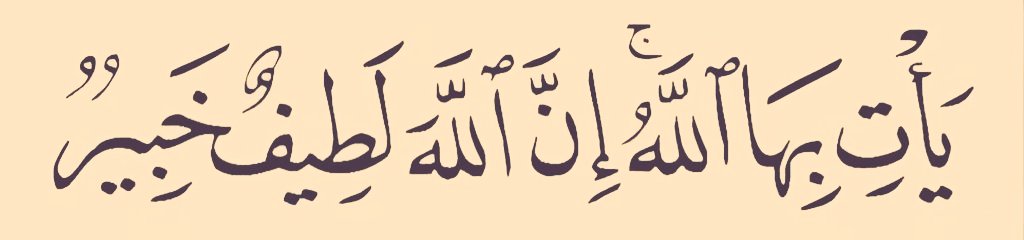 يَأْتِ بِهَا ٱللَّهُ ۚ إِنَّ ٱللَّهَ لَطِيفٌ خَبِيرٌ